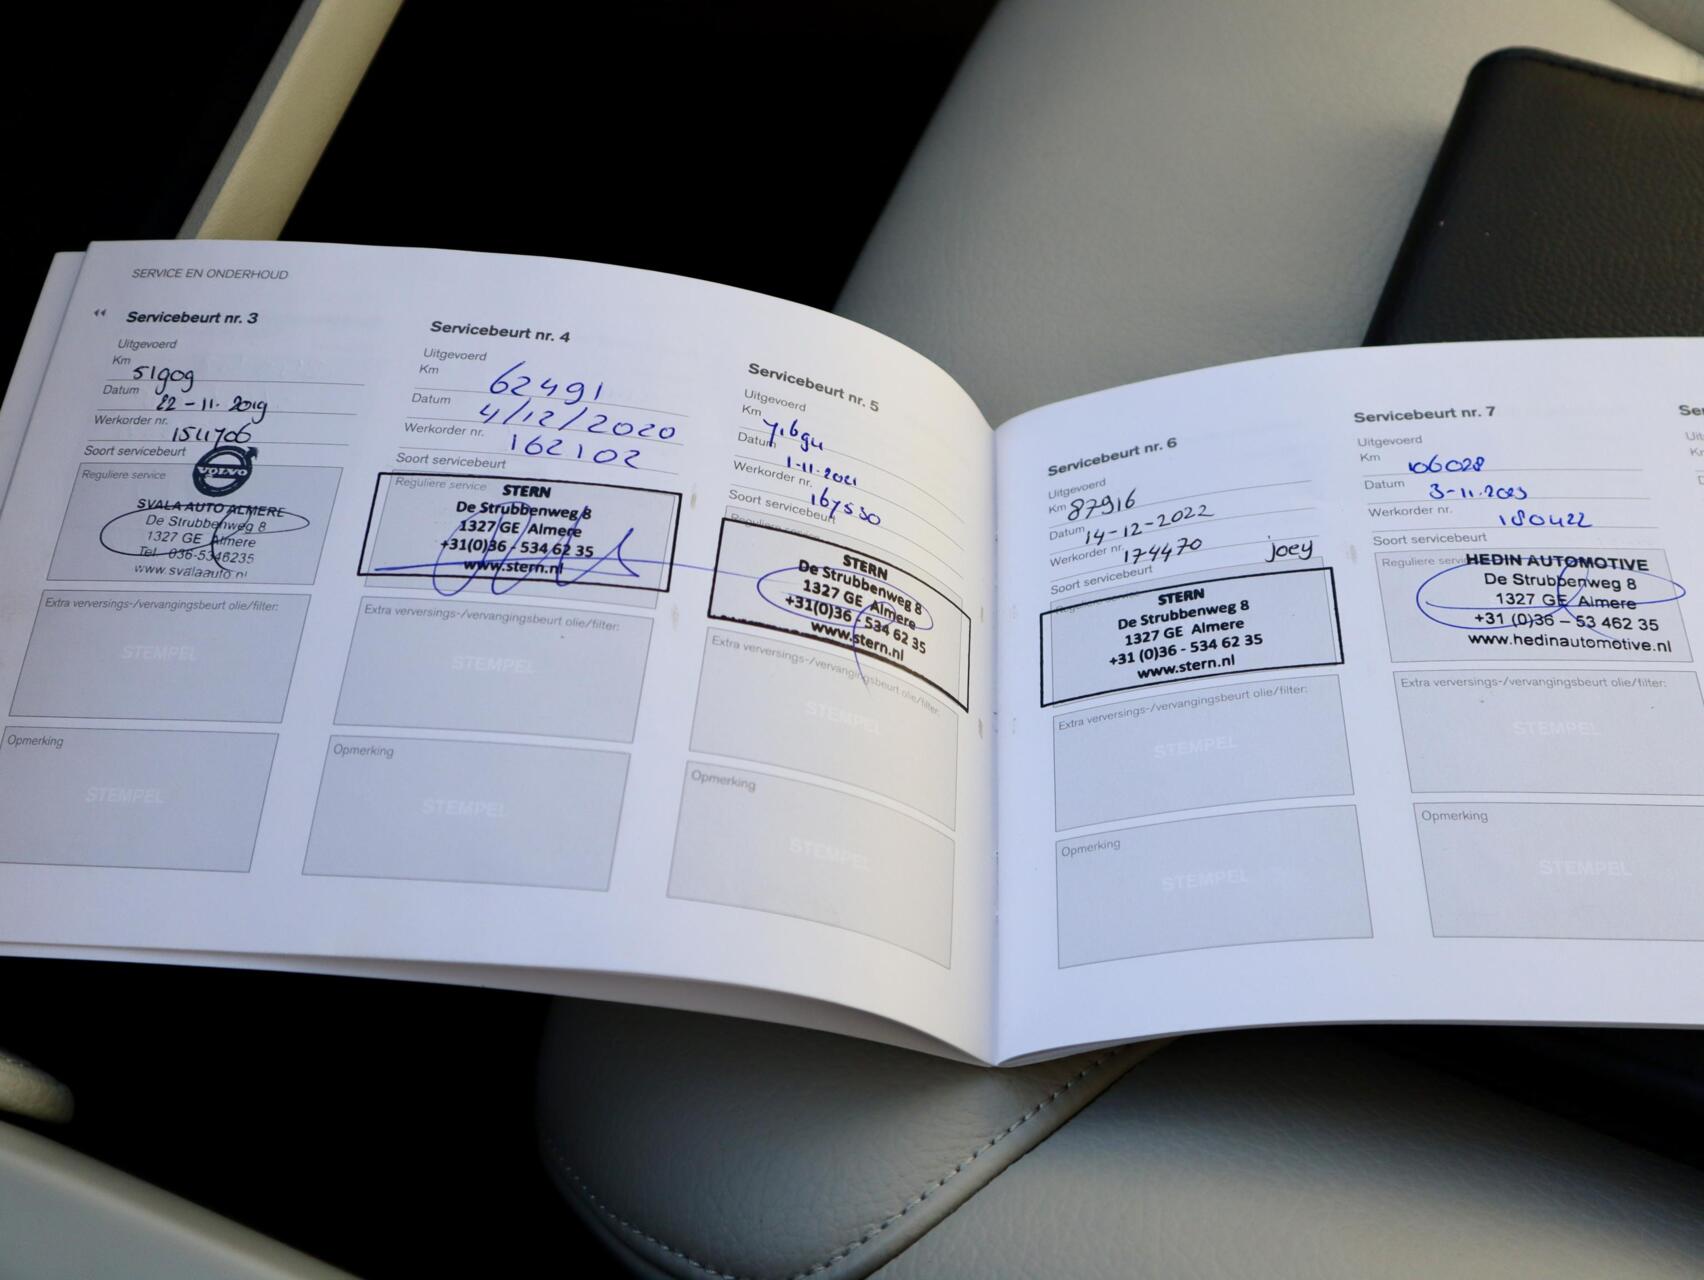 SERVICE EN ONDERHOUD
Servicebeurt nr. 3
Uitgevoerd
Km 51909
Datum 22-11-2019
Werkorder nr.
Soort servicebeurt
Reguliere service
VOLVO
SVALA AUTO ALMERE
De Strubbenweg 8
1327 GE Almere
Tel. 036-5346235
www.svalaauto.nl
Extra verversings-/vervangingsbeurt olie/filter:
STEMPEL
Opmerking
STEMPEL
Servicebeurt nr. 4
Uitgevoerd
Km 62491
Datum 4/12/2020
Werkorder nr. 162102
Soort servicebeurt
Reguliere service
STERN
De Strubbenweg 8
1327 GE Almere
+31(0)36 - 534 62 35
www.stern.nl
Extra verversings-/vervangingsbeurt olie/filter:
STEMPEL
Opmerking
STEMPEL
Servicebeurt nr. 5
Uitgevoerd
Km
Datum 1-11-2021
Werkorder nr. 167530
Soort servicebeurt
Reguliere service
STERN
De Strubbenweg 8
1327 GE Almere
+31(0)36 - 534 62 35
www.stern.nl
Extra verversings-/vervangingsbeurt olie/filter:
STEMPEL
Opmerking
STEMPEL
Servicebeurt nr. 6
Uitgevoerd
Km 87916
Datum 14-12-2022
Werkorder nr. 174470
joey
Soort servicebeurt
Reguliere service
STERN
De Strubbenweg 8
1327 GE Almere
+31 (0)36 - 534 62 35
www.stern.nl
Extra verversings-/vervangingsbeurt olie/filter:
STEMPEL
Opmerking
STEMPEL
Servicebeurt nr. 7
Uitgevoerd
Km 106028
Datum 3-11-2023
Werkorder nr. 180422
Soort servicebeurt
Reguliere service
HEDIN AUTOMOTIVE
De Strubbenweg 8
1327 GE Almere
+31 (0)36 – 53 462 35
www.hedinautomotive.nl
Extra verversings-/vervangingsbeurt olie/filter:
STEMPEL
Opmerking
STEMPEL